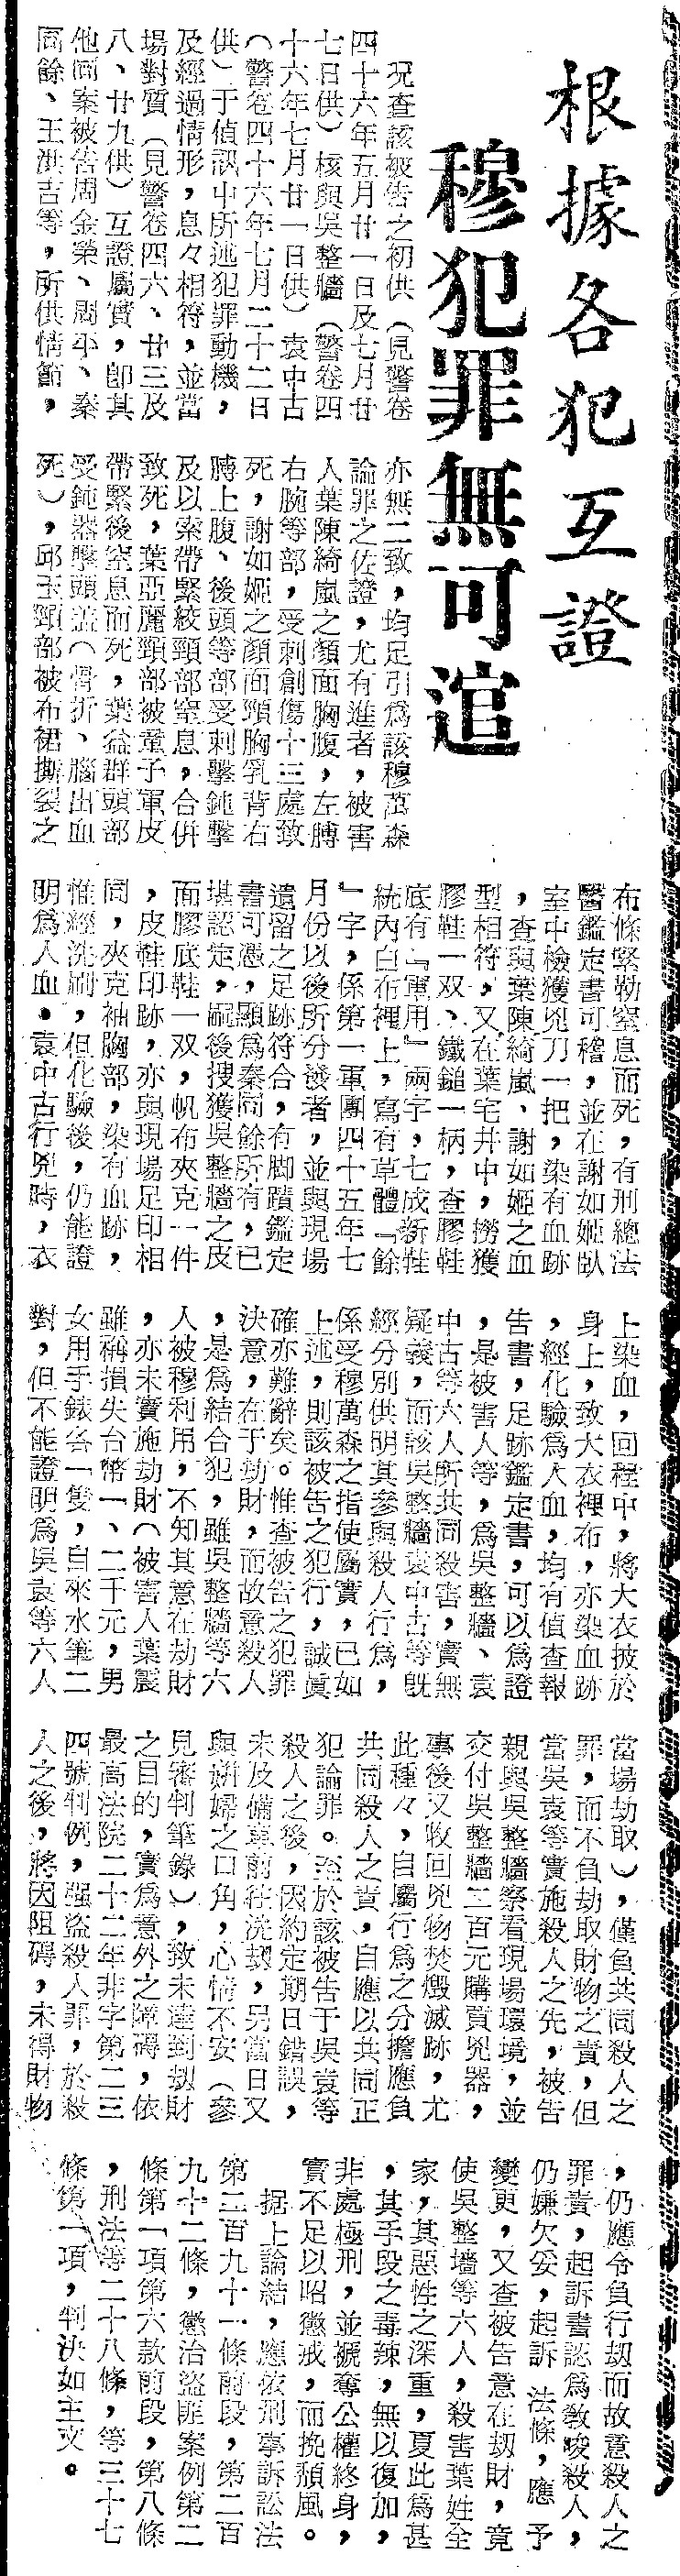 根據各犯互證
穆犯罪無可逭
况查該被告之初供（見警卷
四十六年五月廿一日及七月廿
七日供）核與吳整牆（警卷四
十六年七月廿一日供）袁中古
（警卷四十六年七月二十二日
供）于偵訊中所述犯罪動機，
及經過情形，息々相符，並當
場對質（見警卷四六、廿三及
八、廿九供）互證屬實，卽其
他同案被告周金榮、周平、秦
同餘、王洪吉等，所供情節，
亦無二致，均足引爲該穆萬森
論罪之佐證，尤有進者，被害
人葉陳綺嵐之顏面胸腹，左膊
右腕等部，受刺創傷十三處致
死，謝如姬之顏面頸胸乳背右
膊上腹、後頭等部受刺擊鈍擊
及以索帶緊絞頸部窒息，合併
致死，葉亞麗頸部被童子軍皮
帶緊後窒息而死，葉益群頭部
受鈍器擊頭盖（骨折、腦出血
死），邱玉頸部被布裙撕裂之
布條緊勒窒息而死，有刑總法
醫鑑定書可稽，並在謝如姬臥
室中檢獲兇刀一把，染有血跡
，查與葉陳綺嵐、謝如姬之血
型相符，又在葉宅井中，撈獲
膠鞋一双、鐵鎚一柄，查膠鞋
底有『軍用』兩字，七成新鞋
統內白布裡上，寫有草體『餘
』字，係第一軍團四十五年七
月份以後所分發者，並與現場
遺留之足跡符合，有脚蹟鑑定
書可憑，顯爲秦同餘所有，已
堪認定，嗣後搜獲吳整牆之皮
面膠底鞋一双，帆布夾克一件
，皮鞋印跡，亦與現場足印相
同，夾克袖胸部，染有血跡，
惟經洗刷，但化驗後，仍能證
明爲人血。袁中古行兇時，衣
上染血，回程中，將大衣披於
身上，致大衣裡布，亦染血跡
，經化驗爲人血，均有偵查報
告書，足跡鑑定書，可以爲證
，是被害人等，爲吳整牆、袁
中古等六人所共同殺害，實無
疑義，而該吳整牆袁中古等旣
經分別供明其參與殺人行爲，
係受穆萬森之指使屬實，已如
上述，則該被告之犯行，誠眞
確亦難辭矣。惟查被告之犯罪
決意，在于劫財，而故意殺人
，是爲結合犯，雖吳整牆等六
人被穆利用，不知其意在劫財
，亦未實施劫財（被害人葉震
雖稱損失台幣一、二千元，男
女用手錶各一隻，自來水筆二
對，但不能證明爲吳袁等六人
當場劫取），僅負共同殺人之
罪，而不負劫取財物之責，但
當吳袁等實施殺人之先，被告
親與吳整牆察看現場環境，並
交付吳整牆二百元購買兇器，
事後又收回兇物焚燬滅跡，尤
此種々，自屬行爲之分擔應負
共同殺人之責，自應以共同正
犯論罪。至於該被告于吳袁等
殺人之後，因約定期日錯誤，
未及備車前往洗刼，另當日又
與姘婦之口角，心情不安（參
見審判筆錄），致未達到刼財
之目的，實爲意外之障碍，依
最高法院二十二年非字第二三
四號判例，强盜殺人罪，於殺
人之後，將因阻碍，未得財物
，仍應令負行刼而故意殺人之
罪責，起訴書認爲敎唆殺人，
仍嫌欠妥，起訴 法條，應 予
變更，又查被告意在刼財，竟
使吳整墻等六人，殺害葉姓全
家，其惡性之深重，夏此爲甚
，其手段之毒辣，無以復加，
非處極刑，並褫奪公權終身，
實不足以昭懲戒，而挽頹風。
据上論結，應依刑事訴訟法
第二百九十一條前段，第二百
九十二條，懲治盜匪案例第二
條第一項第六款前段，第八條
，刑法等二十八條，等三十七
條第一項，判決如主文。